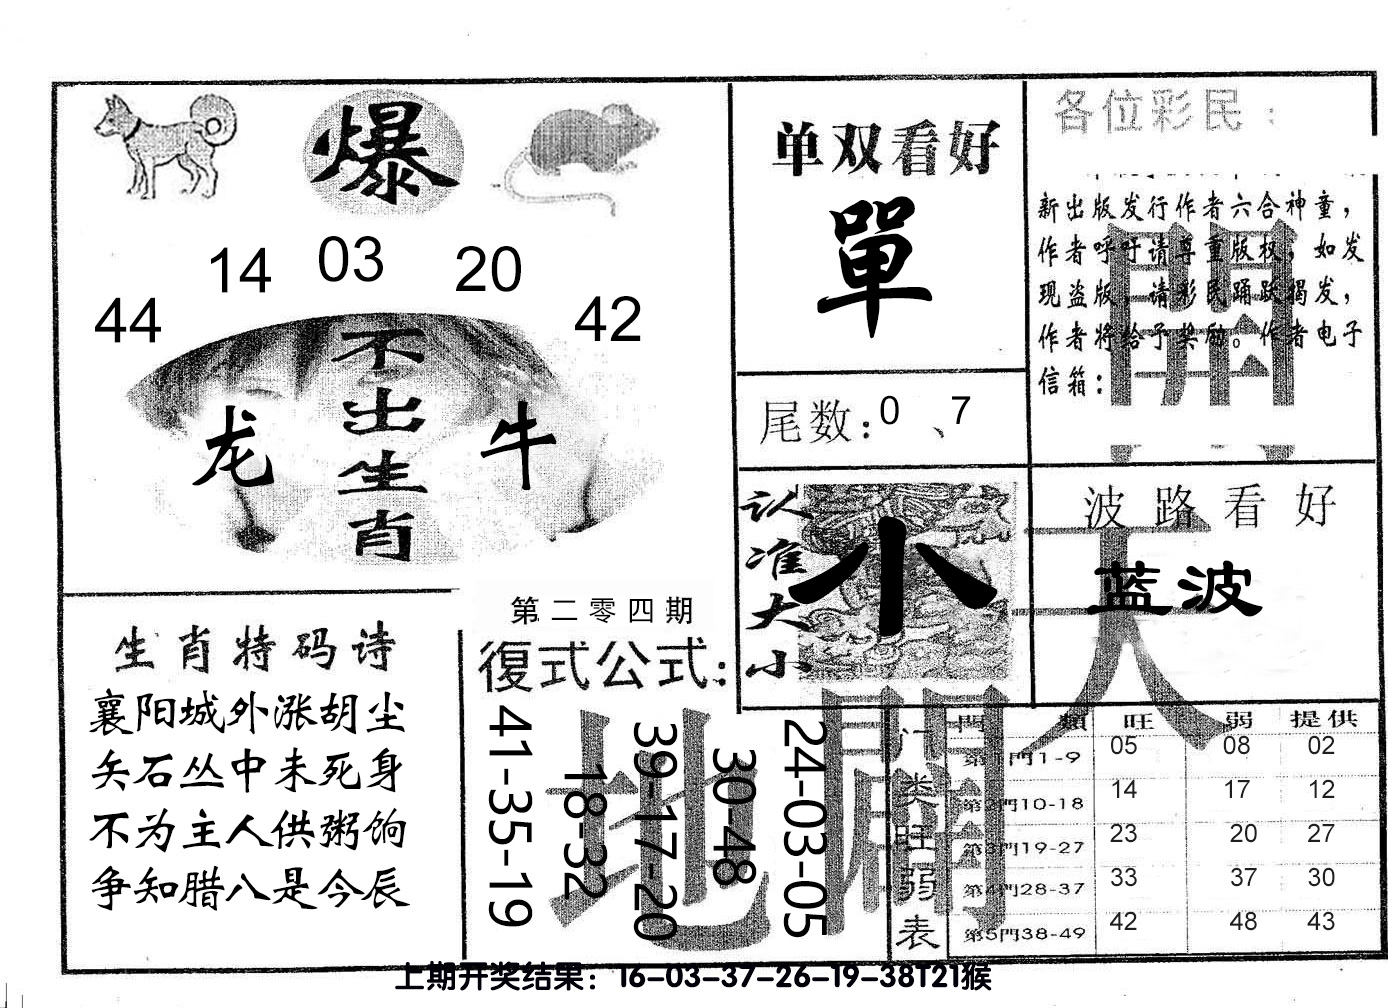 爆
14 03 20
44 42
不出生肖
龙 牛
单双看好
單
尾数:0、7
各位彩民:
新出版发行作者六合神童,
作者呼吁请尊重版权,如发
现盗版,请彩民踊跃揭发,
作者将给予奖励。作者电子
信箱:
認准大小
小
波路看好
蓝波
天
開
地
生肖特码诗
襄阳城外涨胡尘
矢石丛中未死身
不为主人供粥饷
争知腊八是今辰
第二零四期
復式公式:
41-35-19
18-32
39-17-20
30-48
24-03-05
门类旺弱表
門類 旺 弱 提供
第1門1-9 05 08 02
第2門10-18 14 17 12
第3門19-27 23 20 27
第4門28-37 33 37 30
第5門38-49 42 48 43
上期开奖结果：16-03-37-26-19-38T21猴